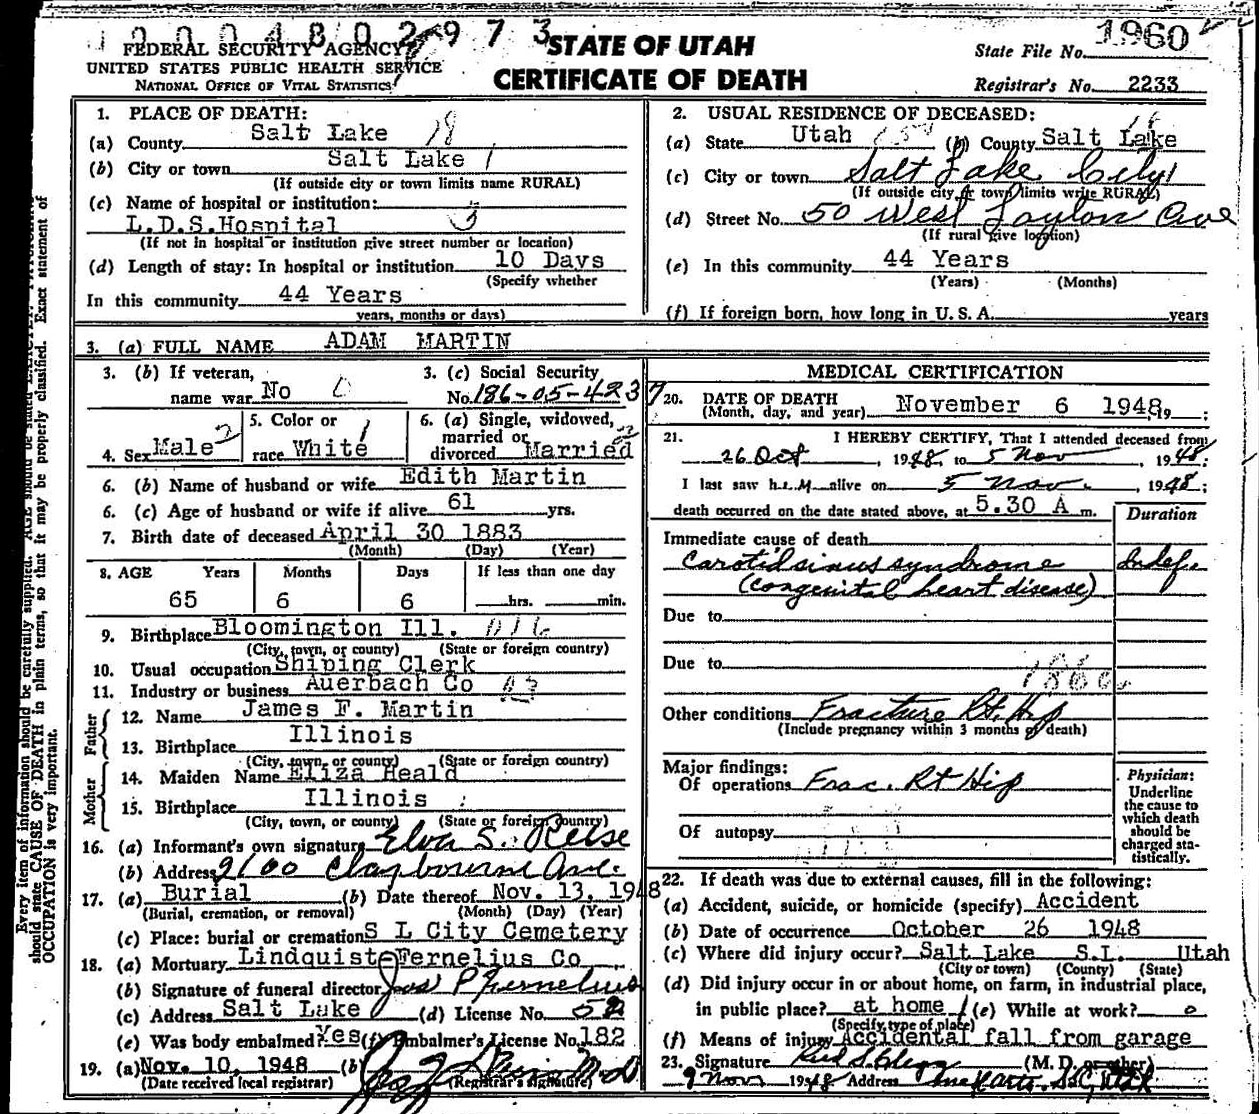 1960
FEDERAL SECURITY AGENCY
UNITED STATES PUBLIC HEALTH SERVICE
NATIONAL OFFICE OF VITAL STATISTICS
STATE OF UTAH
CERTIFICATE OF DEATH
State File No.
Registrar's No. 2233
1. PLACE OF DEATH:
(a) County Salt Lake
(b) City or town Salt Lake
(If outside city or town limits name RURAL)
(c) Name of hospital or institution:
L.D.S.Hospital
(If not in hospital or institution give street number or location)
(d) Length of stay: In hospital or institution 10 Days
(Specify whether
In this community 44 Years
years, months or days)
2. USUAL RESIDENCE OF DECEASED:
(a) State Utah (b) County Salt Lake
(c) City or town Salt Lake City
(If outside city or town limits write RURAL)
(d) Street No. 50 West Layton Ave
(If rural give location)
(e) In this community 44 Years
(Years) (Months)
(f) If foreign born, how long in U. S. A. years
3. (a) FULL NAME ADAM MARTIN
3. (b) If veteran, name war No
3. (c) Social Security No. 186-05-4237
4. Sex Male
5. Color or race White
6. (a) Single, widowed, married or divorced Married
6. (b) Name of husband or wife Edith Martin
6. (c) Age of husband or wife if alive 61 yrs.
7. Birth date of deceased April 30 1883
(Month) (Day) (Year)
8. AGE Years Months Days If less than one day
65 6 6 hrs. min.
9. Birthplace Bloomington Ill.
(City, town, or county) (State or foreign country)
10. Usual occupation Shiping Clerk
11. Industry or business Auerbach Co
Father
12. Name James F. Martin
13. Birthplace Illinois
(City, town, or county) (State or foreign country)
Mother
14. Maiden Name Eliza Heald
15. Birthplace Illinois
(City, town, or county) (State or foreign country)
16. (a) Informant's own signature Elva S. Reese
(b) Address 2100 Claybourne Ave.
17. (a) Burial (b) Date thereof Nov. 13, 1948
(Burial, cremation, or removal) (Month) (Day) (Year)
(c) Place: burial or cremation S L City Cemetery
18. (a) Mortuary Lindquist-Fernelius Co
(b) Signature of funeral director Jos P Fernelius
(c) Address Salt Lake (d) License No. 52
(e) Was body embalmed? Yes (f) Embalmer's License No. 182
19. (a) Nov. 10, 1948 (b)
(Date received local registrar) (Registrar's signature)
MEDICAL CERTIFICATION
20. DATE OF DEATH
(Month, day, and year) November 6 1948 ;
21. I HEREBY CERTIFY, That I attended deceased from
26 Oct, 1948, to 5 Nov, 1948;
I last saw him alive on 5 Nov., 1948;
death occurred on the date stated above, at 5.30 A m.
Duration
Immediate cause of death
Carotid sinus syndrome Indef.
(congenital heart disease)
Due to
Due to
Other conditions Fracture Rt. Hip
(Include pregnancy within 3 months of death)
Major findings:
Of operations Frac. Rt Hip
Of autopsy
Physician:
Underline
the cause to
which death
should be
charged sta-
tistically.
22. If death was due to external causes, fill in the following:
(a) Accident, suicide, or homicide (specify) Accident
(b) Date of occurrence October 26 1948
(c) Where did injury occur? Salt Lake S.L. Utah
(City or town) (County) (State)
(d) Did injury occur in or about home, on farm, in industrial place,
in public place? at home (e) While at work? o
(Specify type of place)
(f) Means of injury Accidental fall from garage
23. Signature (M. D. or other)
9 Nov 1948 Address
Every item of information should be carefully supplied. AGE should be stated
should state CAUSE OF DEATH in plain terms, so that it may be properly classified. Exact statement of
OCCUPATION is very important.